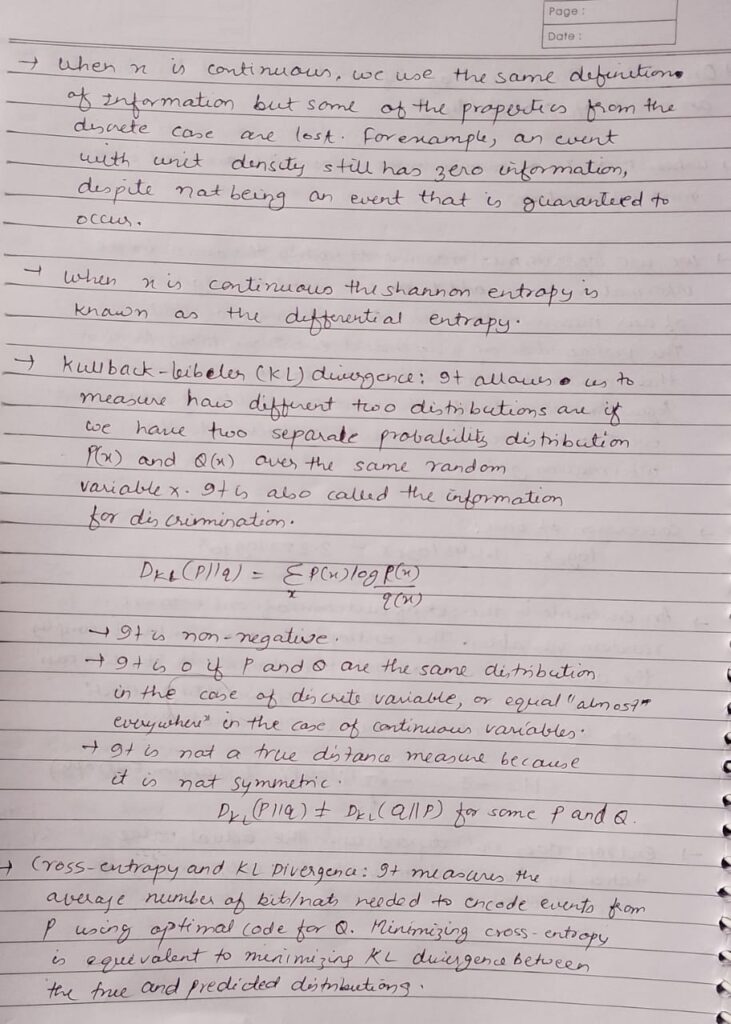 Page :
Date :
→ when x is continuous, we use the same definition
of Information but some of the properties from the
discrete case are lost. for example, an event
with unit density still has zero information,
despite not being an event that is guaranteed to
occur.
→ when x is continuous the shannon entropy is
known as the differential entropy.
→ Kullback-leibeler (KL) divergence: It allows us to
measure how different two distributions are if
we have two separate probability distribution
P(x) and Q(x) over the same random
variable x. It is also called the information
for discrimination.
DKL(P||q) = Σx P(x) log P(x)/q(x)
→ It is non-negative.
→ It is 0 if P and Q are the same distribution
in the case of discrete variable, or equal "almost"
everywhere" in the case of continuous variables.
→ It is not a true distance measure because
it is not symmetric.
DKL(P||q) ≠ DKL(Q||P) for some P and Q.
→ Cross-entropy and KL Divergence: It measures the
average number of bits/nats needed to encode events from
P using optimal code for Q. Minimizing cross-entropy
is equivalent to minimizing KL divergence between
the true and predicted distributions.